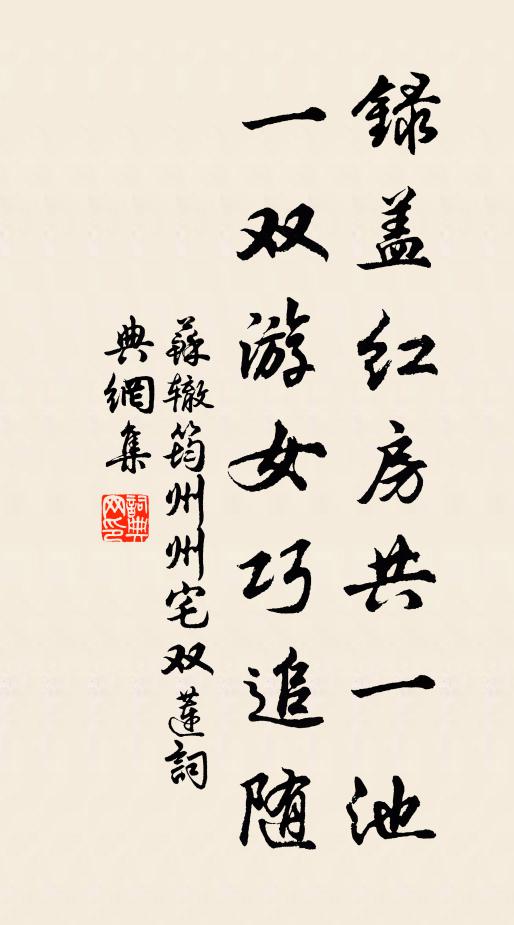 録盖红房共一池
一双游女巧追随
蘇辙筠州州宅双蓮詞
典網集
詞典
网印